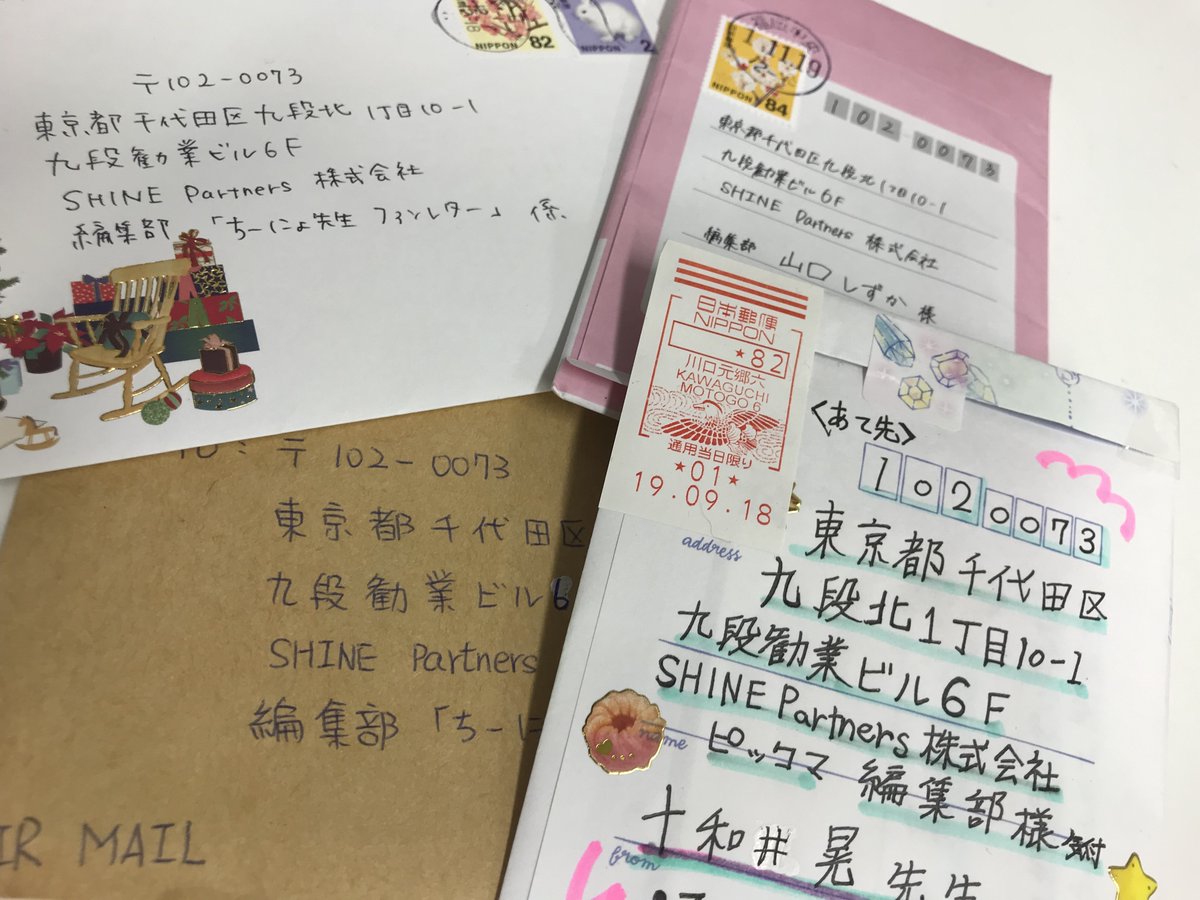 NIPPON 82
NIPPON 2
〒102-0073
東京都千代田区九段北1丁目10-1
九段勧業ビル6F
SHINE Partners 株式会社
編集部 「ちーにょ先生 ファンレター」 係、
11 11 19
NIPPON 84
102 0073
東京都千代田区九段北1丁目10-1
九段勧業ビル6F
SHINE Partners 株式会社
編集部 山口しずか 様
日本郵便
NIPPON
★82
川口元郷六
KAWAGUCHI
MOTOGO 6
通用当日限り
★01★
19.09.18
〒102-0073
東京都千代田区
九段勧業ビル6
SHINE Partners
編集部 「ちーに
IR MAIL
<あて先>
1020073
address
東京都千代田区
九段北1丁目10-1
九段勧業ビル6F
SHINE Partners 株式会社
name
ピッコマ 編集部様気付
十和井晃先生
from